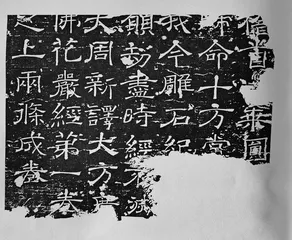 稽首乘圓
歸命十方常
我今雕石
願劫盡時經不滅
大周新譯大方廣
佛花嚴經第一卷
之上兩條成卷